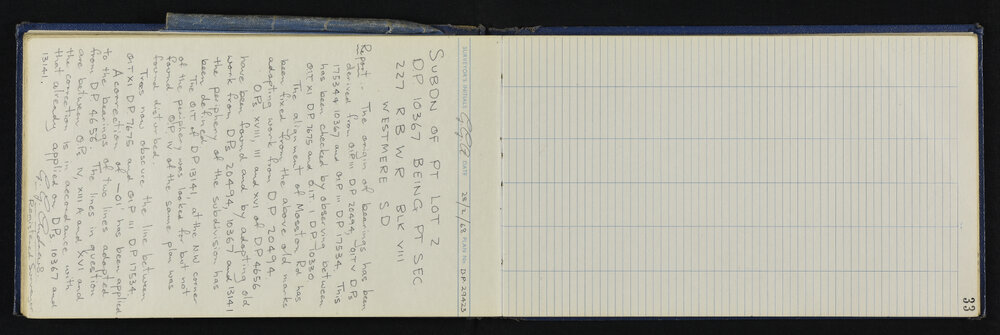 SURVEYOR'S INITIALS GGA DATE 28/2/63 PLAN No. D.P. 29423
SUBDN OF PT LOT 2
DP 10367 BEING PT SEC
227 R B W R BLK VIII
WESTMERE SD
Report. The origin of bearings has been
derived from OIP III DP 20494, OIT V DPs
17534 & 10367 and OIP III DP 17534. This
has been checked by observing between
OIT XI DP 7675 and OIT I DP 10330.
The alignment of Mosston Rd has
been fixed from the above old marks
adopting work from DP 20494.
OPs XVIII, III and XVI of DP 4656
have been found and by adopting old
work from DPs 20494, 10367 and 13141
the periphery of the subdivision has
been defined.
The OIT of DP 13141, at the NW corner
of the periphery was looked for but not
found. OP IV of the same plan was
found disturbed.
Trees now obscure the line between
OIT XI DP 7675 and OIP III DP 17534.
A correction of -01' has been applied
to the bearings of two lines adopted
from DP 4656. The lines in question
are between OPs IV, XIII A and XVI and
the correction is in accordance with
that already applied on DPs 10367 and
13141.
G. G. Andrews
Registered Surveyor
33